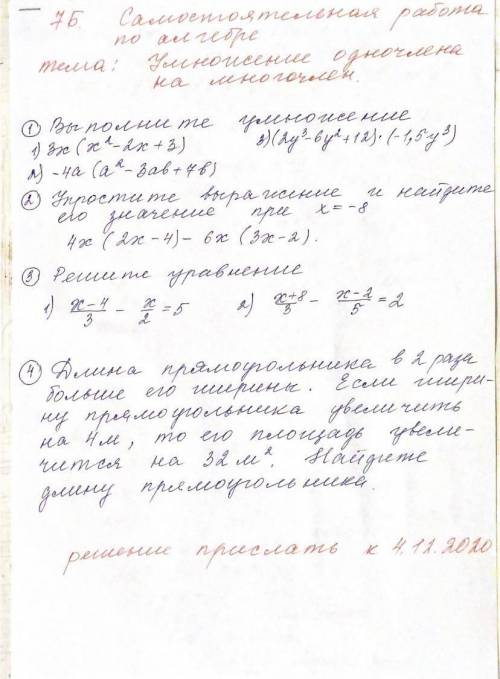 7Б. Самостоятельная работа
по алгебре
тема: Умножение одночлена
на многочлен.
① Выполните умножение
1) 3x (x² - 2x + 3) 3) (2y³ - 6y² + 12) · (-1,5y³)
2) -4a (a² - 3ab + 7b)
② Упростите выражение и найдите
его значение при x = -8
4x (2x - 4) - 6x (3x - 2).
③ Решите уравнение
1) (x-4)/3 - x/2 = 5 2) (x+8)/3 - (x-2)/5 = 2
④ Длина прямоугольника в 2 раза
больше его ширины. Если шири-
ну прямоугольника увеличить
на 4 м, то его площадь увели-
чится на 32 м². Найдите
длину прямоугольника.
решение прислать к 4.12.2020